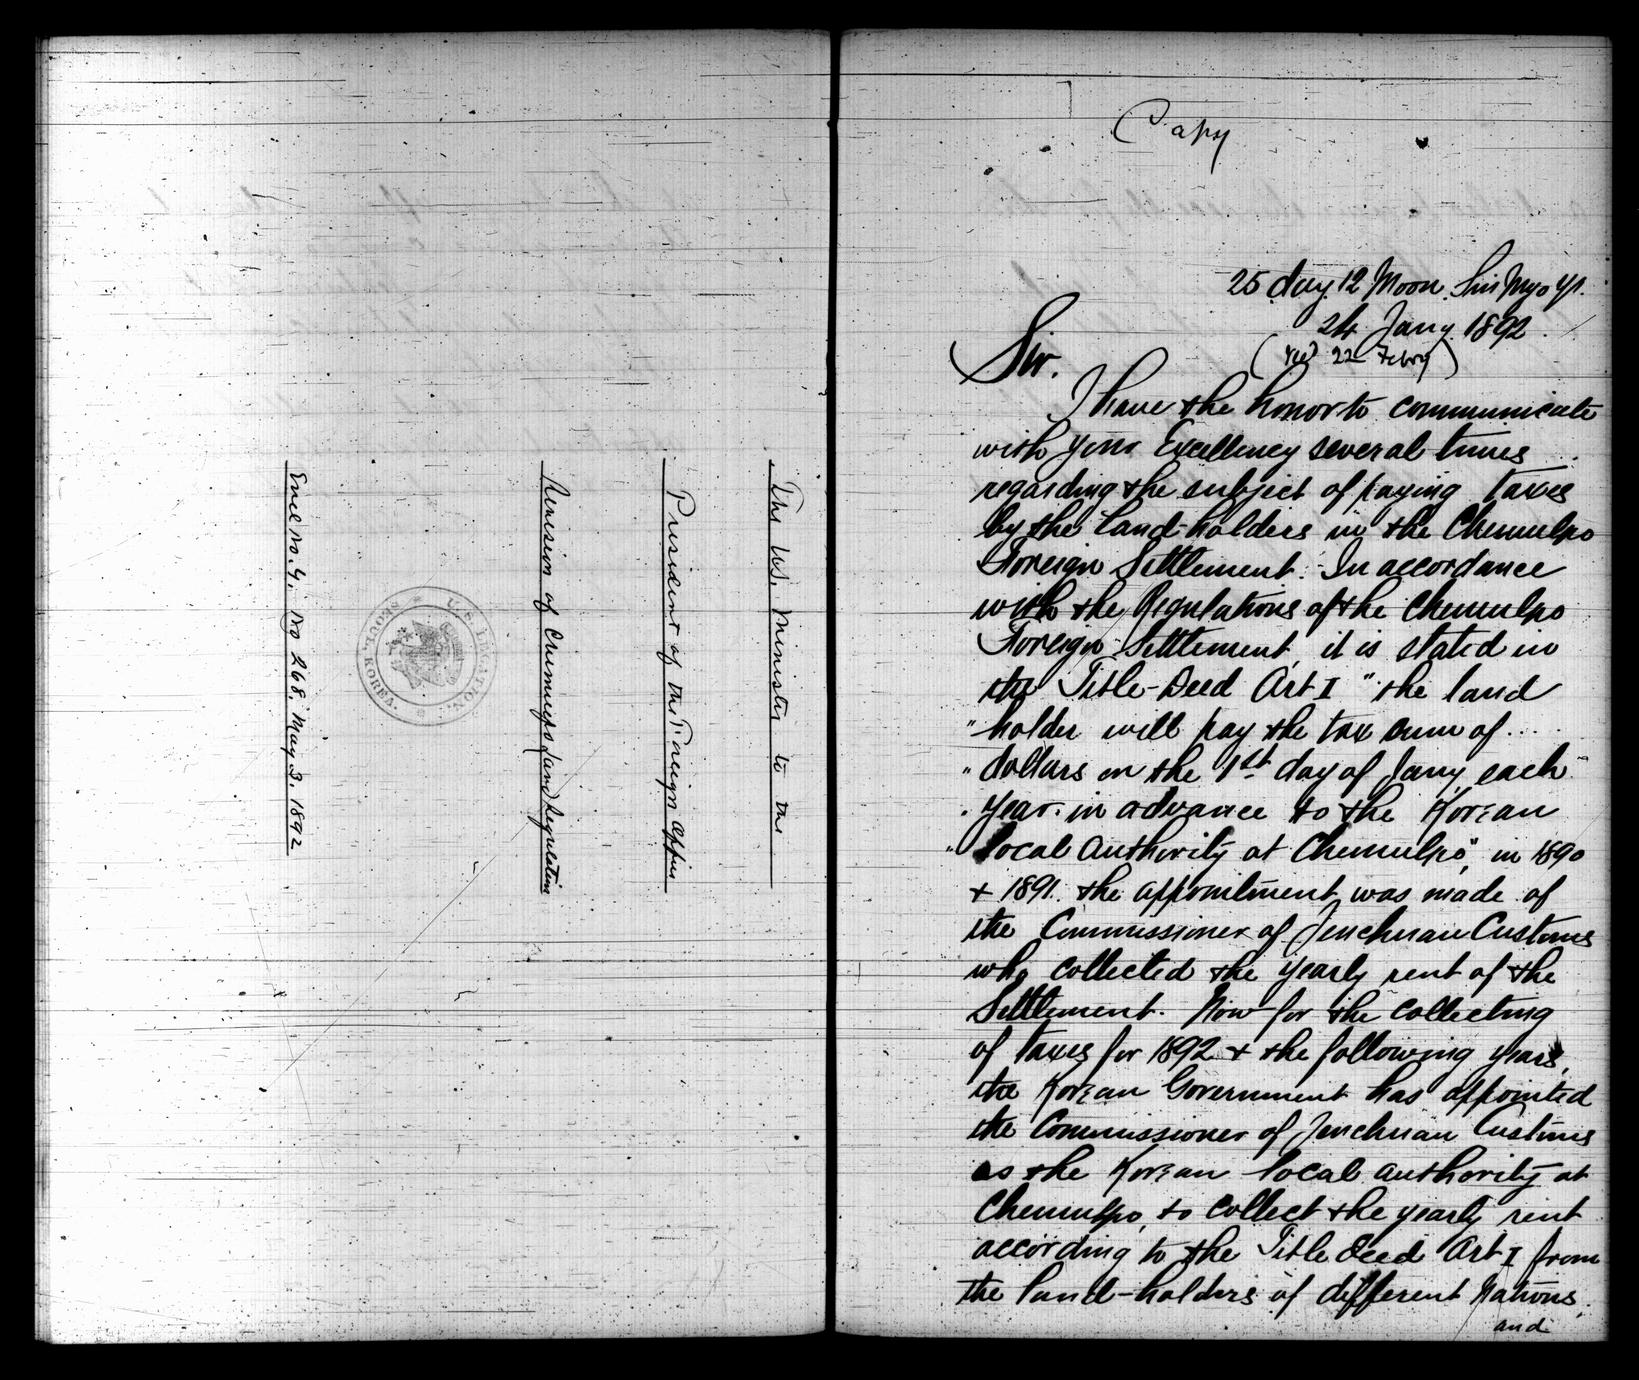 The U.S. Minister to the
President of the Foreign Office
Revision of Chemulpo Land Regulations
U.S. LEGATION
SEOUL, KOREA.
Encl no. 4. No 268. May 3. 1892
Copy
25 day 12 Moon. Sin Myo yr.
24 Jany. 1892.
(rec'd 22 Febry)
Sir.
I have the honor to communicate
with your Excellency several times
regarding the subject of paying taxes
by the land-holders in the Chemulpo
Foreign Settlement. In accordance
with the Regulations of the Chemulpo
Foreign Settlement, it is stated in
the Title-Deed Art I "the land
" holder will pay the tax sum of ....
" dollars on the 1st day of Jany, each
" year in advance to the Korean
" local authority at Chemulpo", in 1890
+ 1891. the appointment was made of
the Commissioner of Jenchuan Customs
who collected the yearly rent of the
Settlement. Now for the collecting
of taxes for 1892 + the following years,
the Korean Government has appointed
the Commissioner of Jenchuan Customs
as the Korean local authority at
Chemulpo, to collect the yearly rent
according to the Title Deed Art I from
the land-holders of different Nations,
and